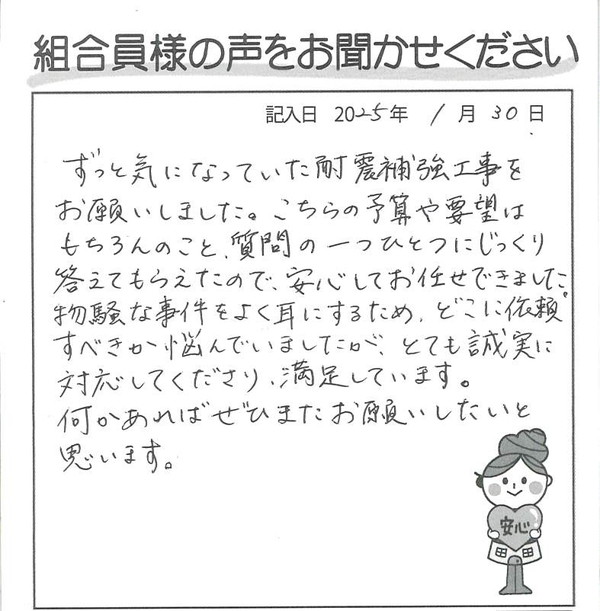 組合員様の声をお聞かせください
記入日 2025年 1月 30日
ずっと気になっていた耐震補強工事を
お願いしました。こちらの予算や要望は
もちろんのこと、質問の一つひとつにじっくり
答えてもらえたので、安心してお任せできました。
物騒な事件をよく耳にするため、どこに依頼
すべきか悩んでいましたが、とても誠実に
対応してくださり、満足しています。
何かあればぜひまたお願いしたいと
思います。
安心